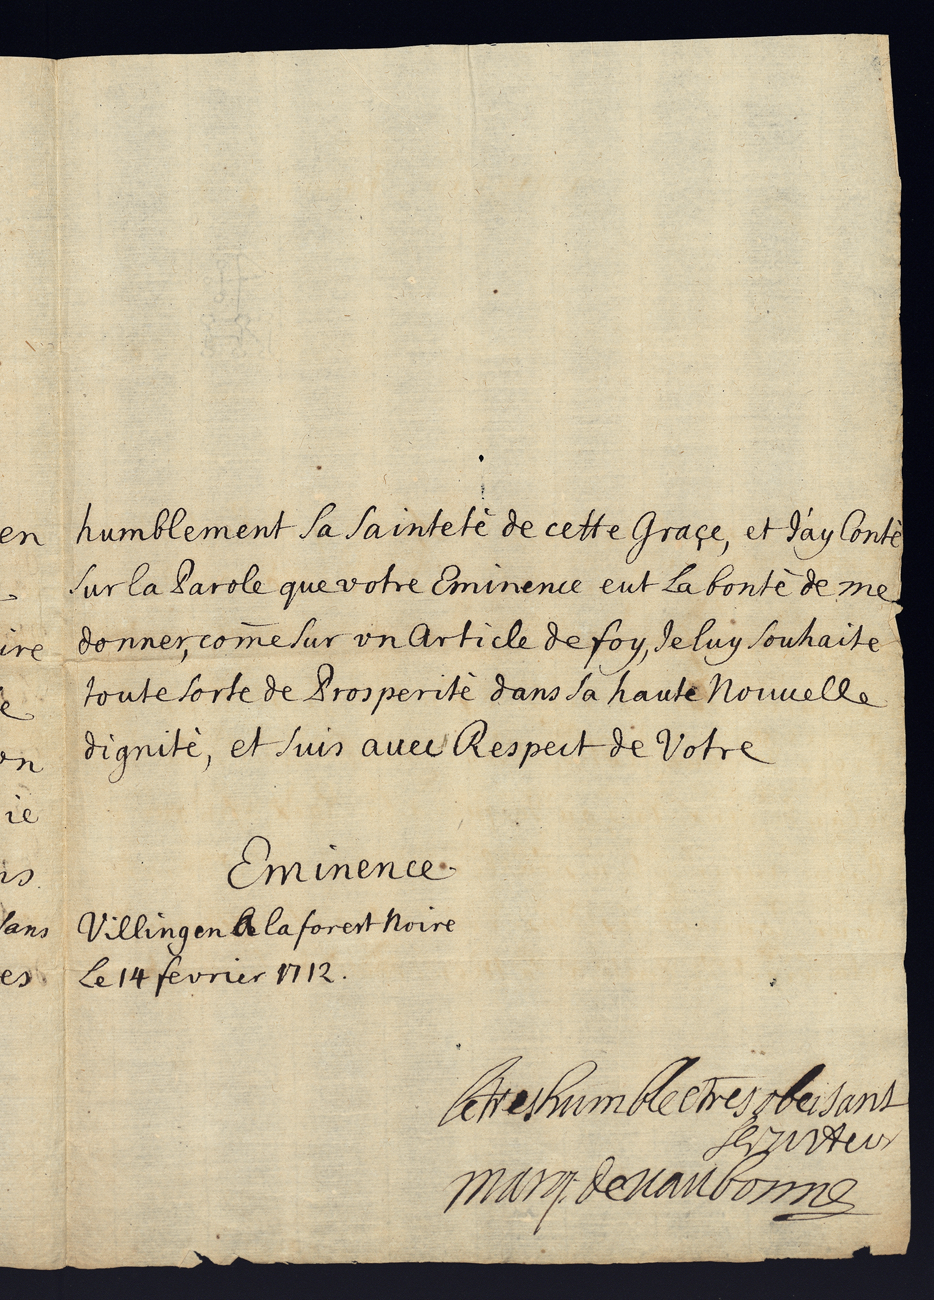 en
ire
e
on
ie
ns
dans
es
humblement sa Saintetè de cette Graçe, et J'ay Contè
sur la Parole que votre Eminence eut La bontè de me
donner, com̅e sur vn Article de foy, Je luy souhaite
toute sorte de Prosperitè dans sa haute Nouuelle
dignitè, et suis auec Respect de Votre
Eminence
Villingen a la forest Noire
Le 14 fevrier 1712.
le tres humble e tres obeisant
servitteur
marq. de uaubonne